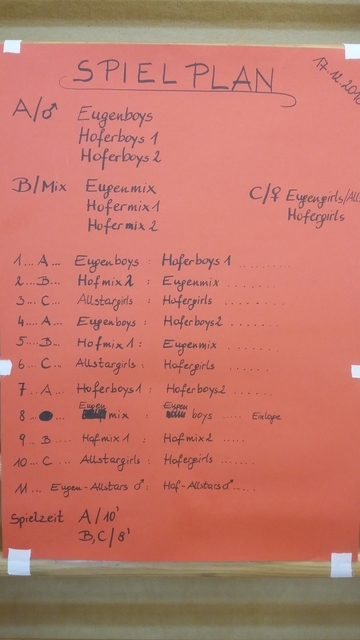 SPIELPLAN
17.12.20
A/♂ Eugenboys
Hoferboys 1
Hoferboys 2
B/Mix Eugenmix
Hofermix 1
Hofermix 2
C/♀ Eugengirls/All
Hofergirls
1... A... Eugenboys : Hoferboys 1 ........
2... B... Hofmix 2 : Eugenmix ......
3... C... Allstargirls : Hofergirls .......
4... A... Eugenboys : Hoferboys2 .......
5... B... Hofmix 1 : Eugenmix .......
6... C... Allstargirls : Hofergirls .......
7... A... Hoferboys1 : Hoferboys2 .....
8... Eugen mix : Eugen boys .... Einlage
9... B... Hofmix 1 : Hofmix 2 .....
10... C... Allstargirls : Hofergirls ......
11... Eugen-Allstars ♂ : Hof-Allstars ♂ .....
Spielzeit A/10'
B,C/8'